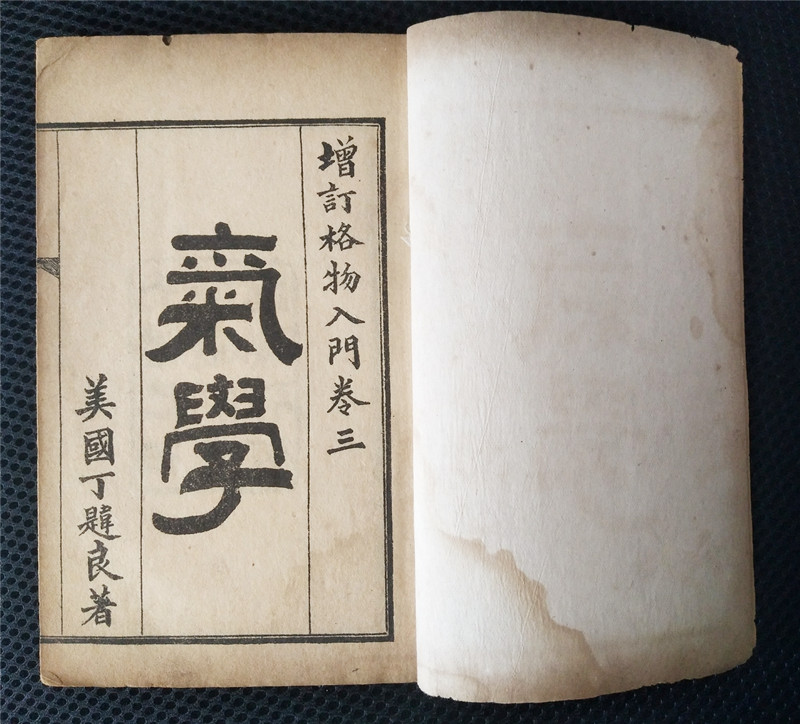 增訂格物入門卷三
氣學
美國丁韙良著